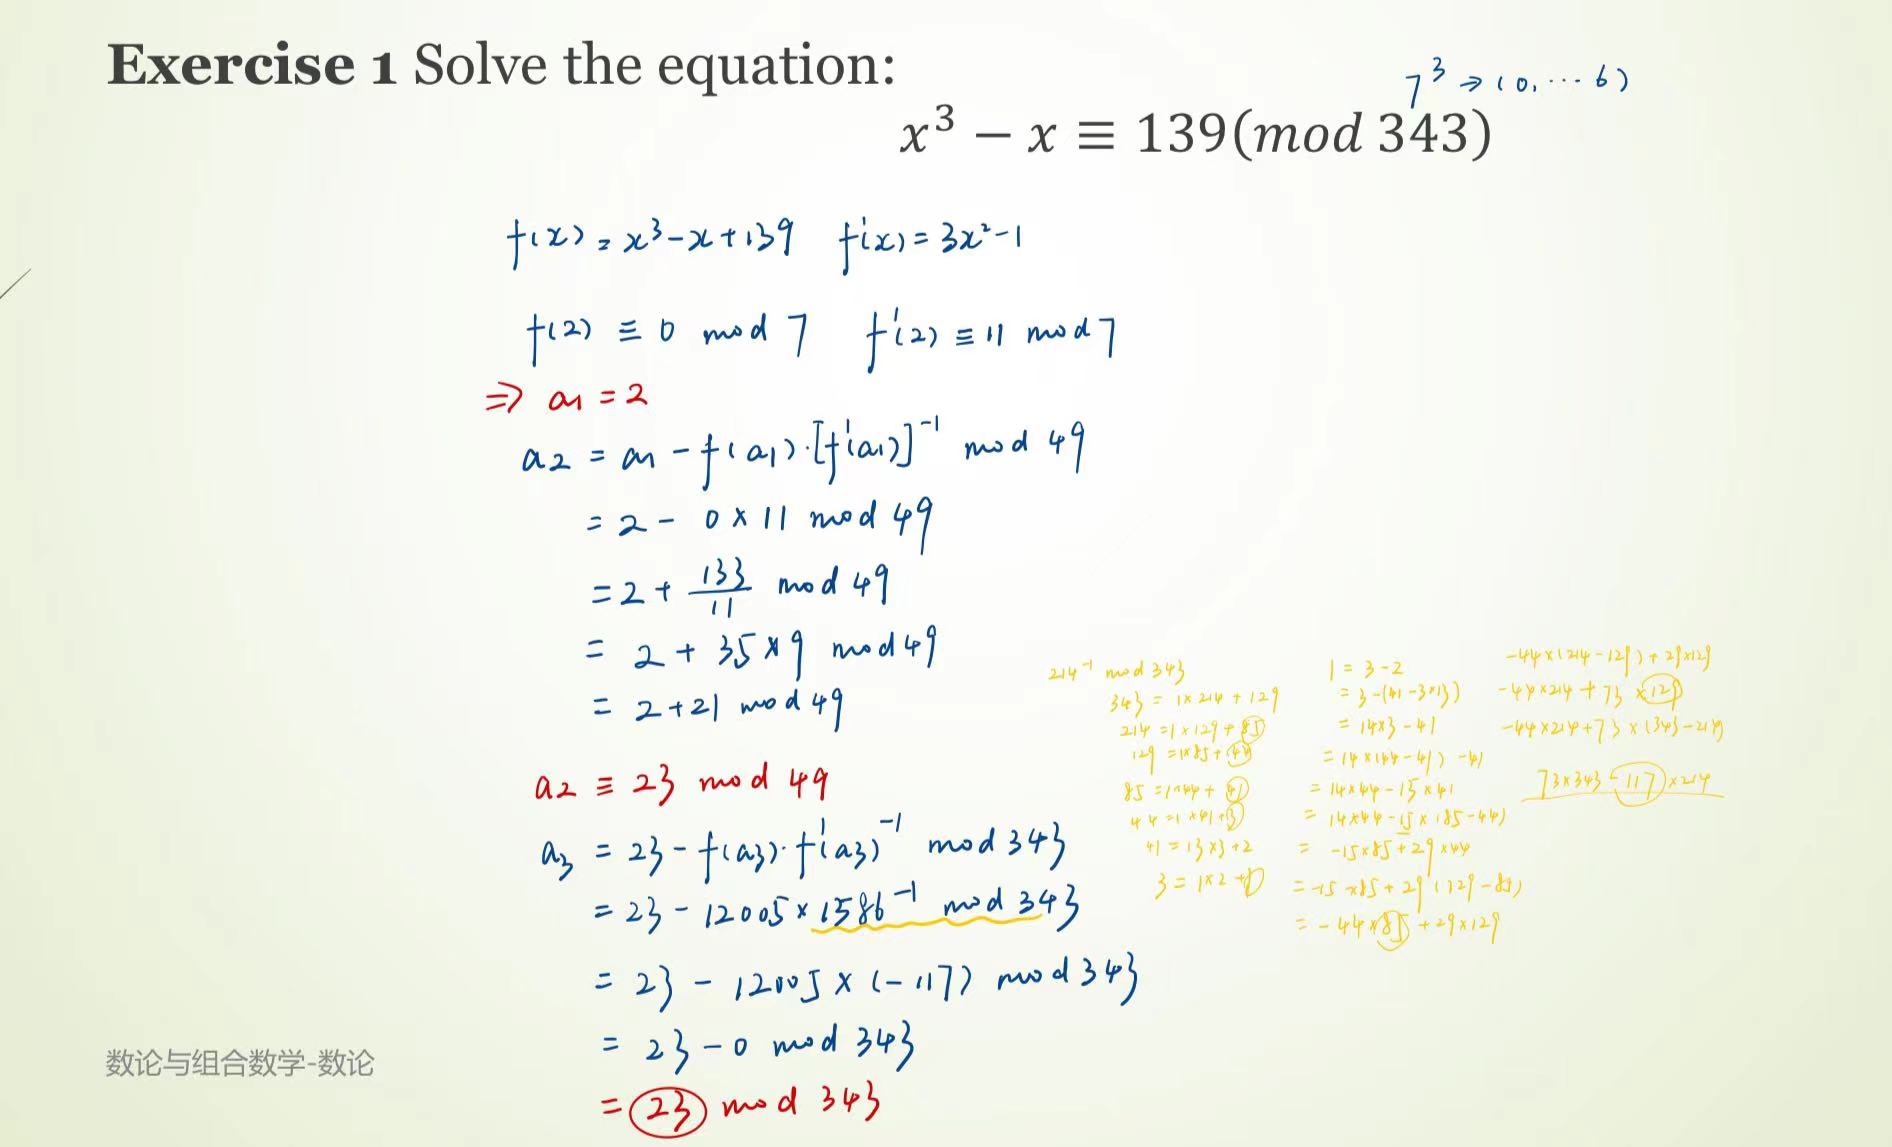 Exercise 1 Solve the equation:
7³ ⇒ (0, ... 6)
x³ − x ≡ 139(mod 343)
f(x) = x³-x+139 f'(x) = 3x²-1
f(2) ≡ 0 mod 7 f'(2) ≡ 11 mod 7
⇒ a1 = 2
a2 = a1 - f(a1)·[f'(a1)]⁻¹ mod 49
= 2 - 0 × 11 mod 49
= 2 + 133/11 mod 49
= 2 + 35 × 9 mod 49
= 2+21 mod 49
a2 ≡ 23 mod 49
a3 = 23 - f(a3)·f'(a3)⁻¹ mod 343
= 23 - 12005 × 1586⁻¹ mod 343
= 23 - 12005 × (-117) mod 343
= 23 - 0 mod 343
= 23 mod 343
214⁻¹ mod 343
343 = 1×214 + 129
214 = 1×129 + 85
129 = 1×85 + 44
85 = 1×44 + 41
44 = 1×41+3
41 = 13×3+2
3 = 1×2+1
1 = 3-2
= 3-(41-3×13)
= 14×3-41
= 14×(44-41)-41
= 14×44-15×41
= 14×44-15×(85-44)
= -15×85+29×44
= -15×85+29(129-85)
= -44×85+29×129
-44×(214-129)+29×129
-44×214+73×129
-44×214+73×(343-214)
73×343-117×214
数论与组合数学-数论